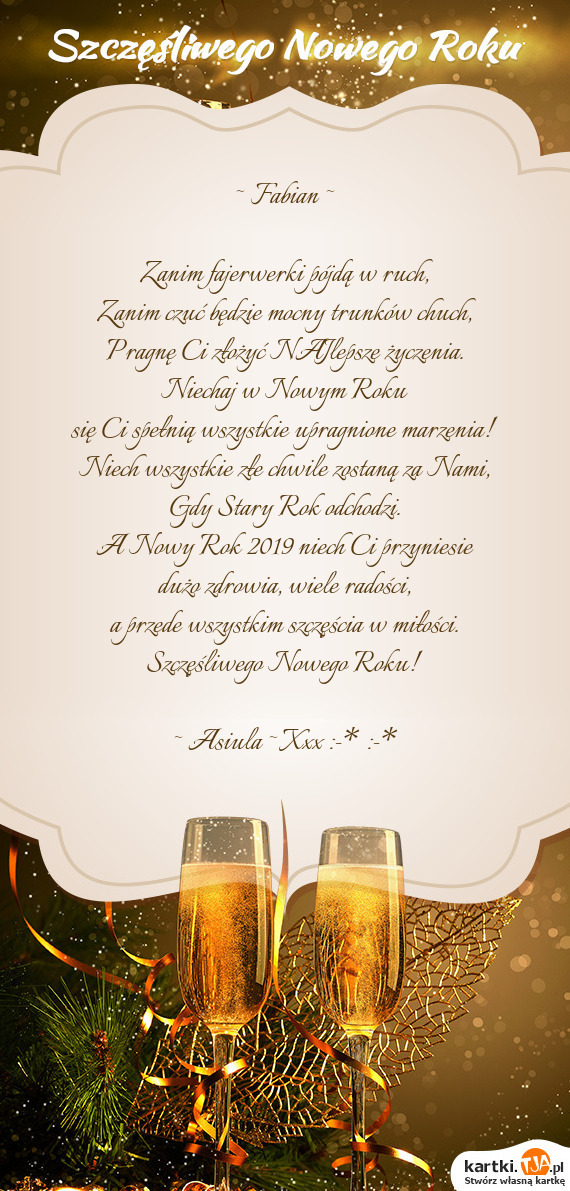 Szczęśliwego Nowego Roku
~ Fabian ~
Zanim fajerwerki pójdą w ruch,
Zanim czuć będzie mocny trunków chuch,
Pragnę Ci złożyć NAJlepsze życzenia.
Niechaj w Nowym Roku
się Ci spełnią wszystkie upragnione marzenia!
Niech wszystkie złe chwile zostaną za Nami,
Gdy Stary Rok odchodzi.
A Nowy Rok 2019 niech Ci przyniesie
dużo zdrowia, wiele radości,
a przede wszystkim szczęścia w miłości.
Szczęśliwego Nowego Roku!
~ Asiula ~ Xxx :-* :-*
kartki.TJA.pl
Stwórz własną kartkę